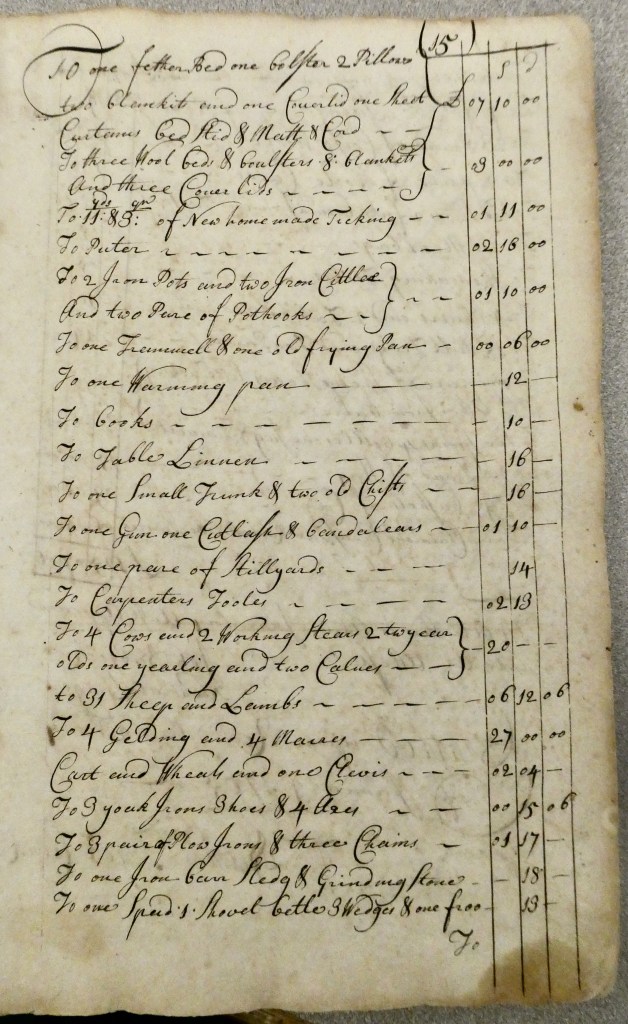 (15)
To one fether Bed one bolster 2 Pillows s d
two blankit and one Coverlid one Sheet £ 07 10 00
Curtains bed Stid & Matt & Cord
To three Wool beds & boulsters & blankets 03 00 00
And three Coverlids
yds qrs
To 11: & 3: of New home made Ticking 01 11 00
To Puter 02 16 00
To 2 Iron Pots and two Iron Cittles 01 10 00
And two Pare of Pothooks
To one Trammell & one old frying Pan 00 06 00
To one Warming pan 12
To books 10
To Table Linnen 16
To one Small Trunk & two old Chists 16
To one Gun one Cutlash & bandalears 01 10
To one pare of Stillyards 14
To Carpenters Tooles 02 13
To 4 Cows and 2 Working Stears 2 two year 20
olds one yearling and two Calves
to 31 Sheep and Lambs 06 12 06
To 4 Gelding and 4 Mares 27 00 00
Cart and Wheals and one Clevis 02 04
To 3 yoak Irons Shoes & 4 Axes 00 15 06
To 3 pair of Plow Irons & three Chains 01 17
To one Iron barr Sledg & Grinding Stone 18
To one Spead 1 Shovel betle 3 Wedges & one froo 13
To